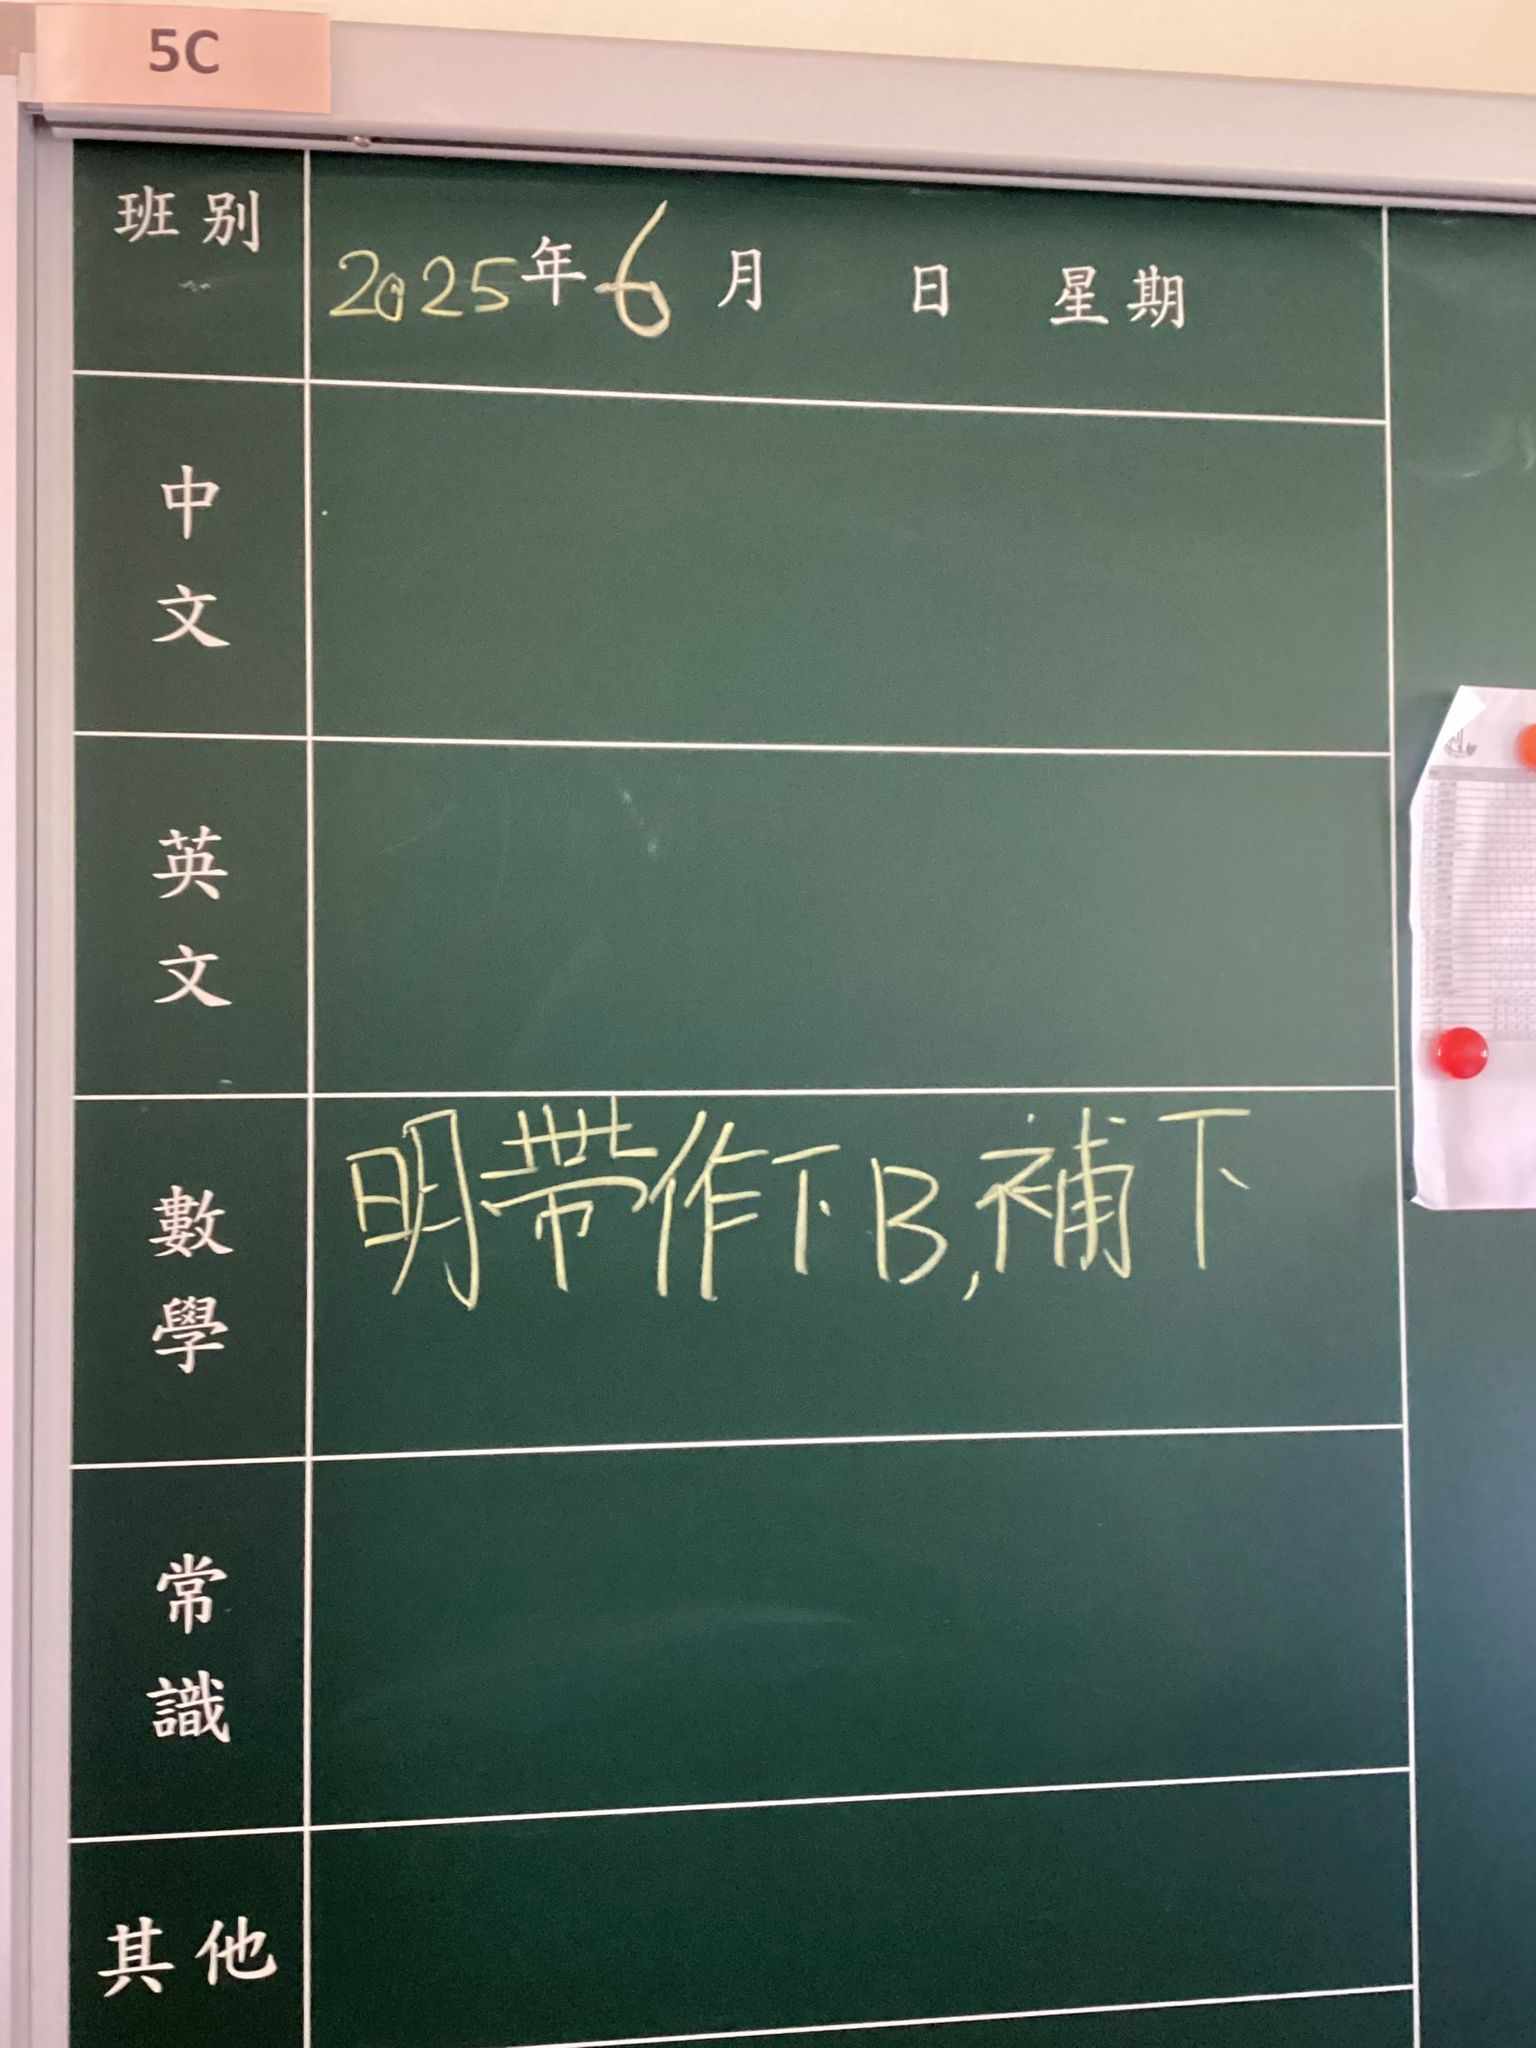 5C
班別 2025年6月 日 星期
中文
英文
數學 明帶作下B,補下
常識
其他